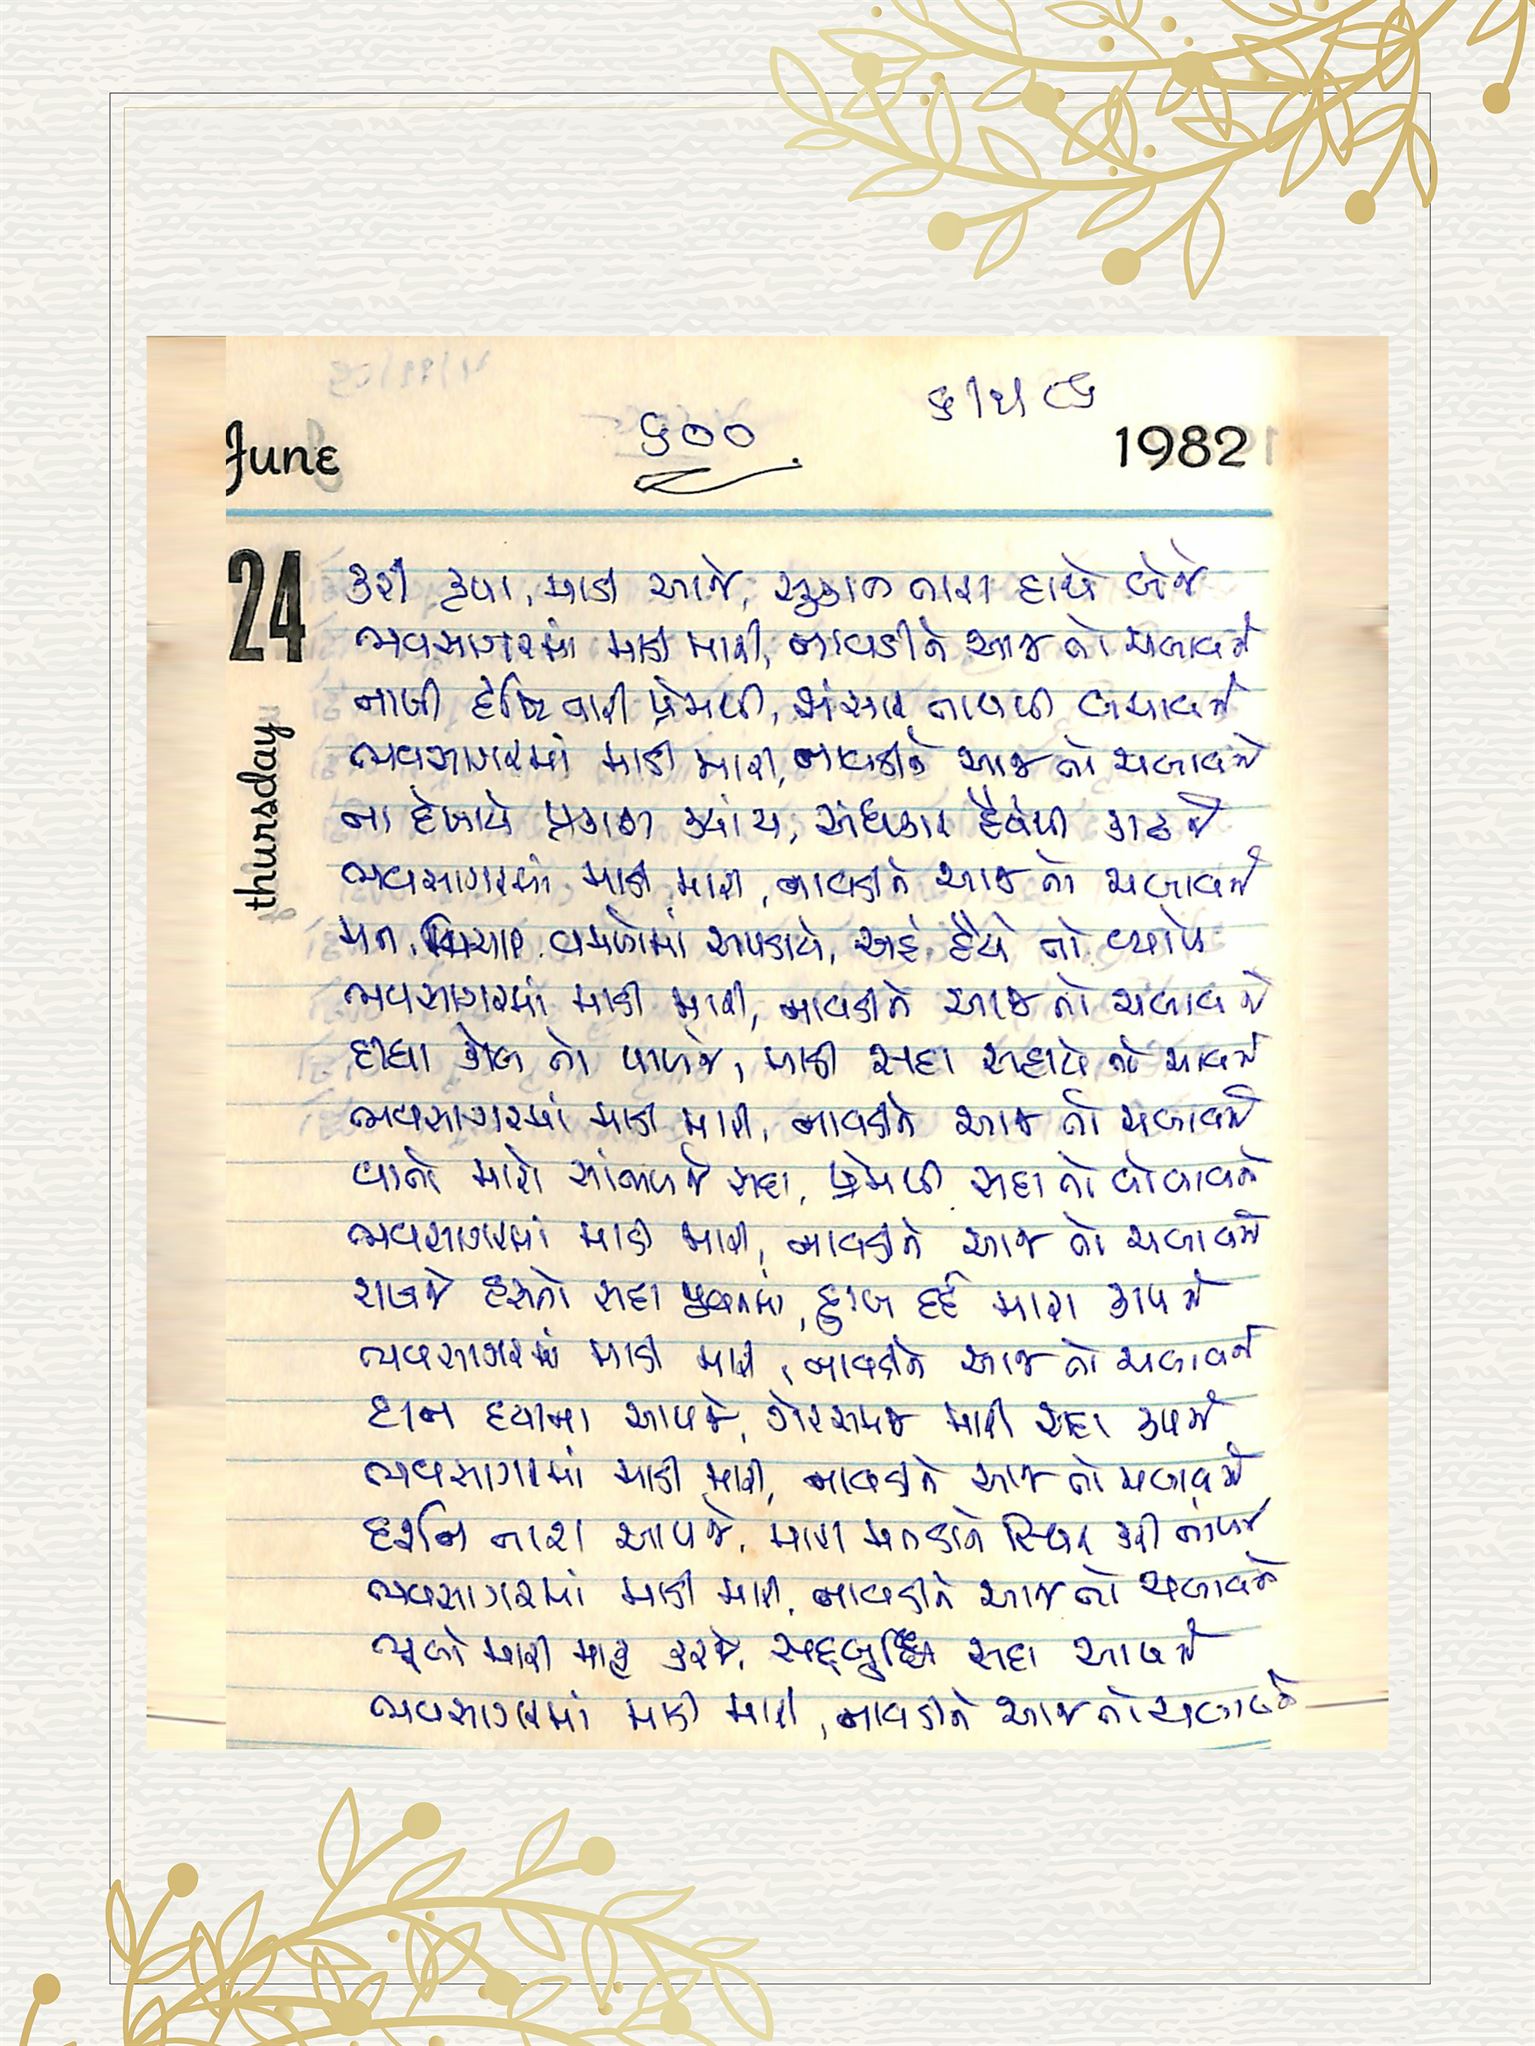 ૬/૫/૮૬
June ૬૦૦ 1982
24
thursday
કરી કૃપા, માડી આજે, સુકાન તારા હાથે લેજે
ભવસાગરમાં માડી મારી, નાવડીને આજ તો ચલાવજે
નાખી દૃષ્ટિ તારી પ્રેમથી, સંસાર તાપથી બચાવજે
ભવસાગરમાં માડી મારી, નાવડીને આજ તો ચલાવજે
ના દેખાયે પ્રકાશ ક્યાંય, અંધકાર હૈયેથી કાઢજે
ભવસાગરમાં માડી મારી, નાવડીને આજ તો ચલાવજે
મન, વિચાર વમળોમાં અપડાયે, અહં હૈયે તો વ્યાપે
ભવસાગરમાં માડી મારી, નાવડીને આજ તો ચલાવજે
દીધા કોલ તો પાળજે, માડી સદા સહાયે તો આવજે
ભવસાગરમાં માડી મારી, નાવડીને આજ તો ચલાવજે
વાતો મારી સાંભળજે સદા, પ્રેમથી સદા તો બોલાવજે
ભવસાગરમાં માડી મારી, નાવડીને આજ તો ચલાવજે
રાખજે હસતો સદા મુખમાં, દુઃખ દર્દ મારા કાપજે
ભવસાગરમાં માડી મારી, નાવડીને આજ તો ચલાવજે
દાન દયાના આપજે, ગેરસમજ મારી સદા કાપજે
ભવસાગરમાં માડી મારી, નાવડીને આજ તો ચલાવજે
દર્શન તારા આપજે, મારા મનડાને સ્થિર કરી નાંખજે
ભવસાગરમાં માડી મારી, નાવડીને આજ તો ચલાવજે
ભૂલો મારી માફ કરજે, સદ્દબુદ્ધિ સદા આપજે
ભવસાગરમાં માડી મારી, નાવડીને આજ તો ચલાવજે